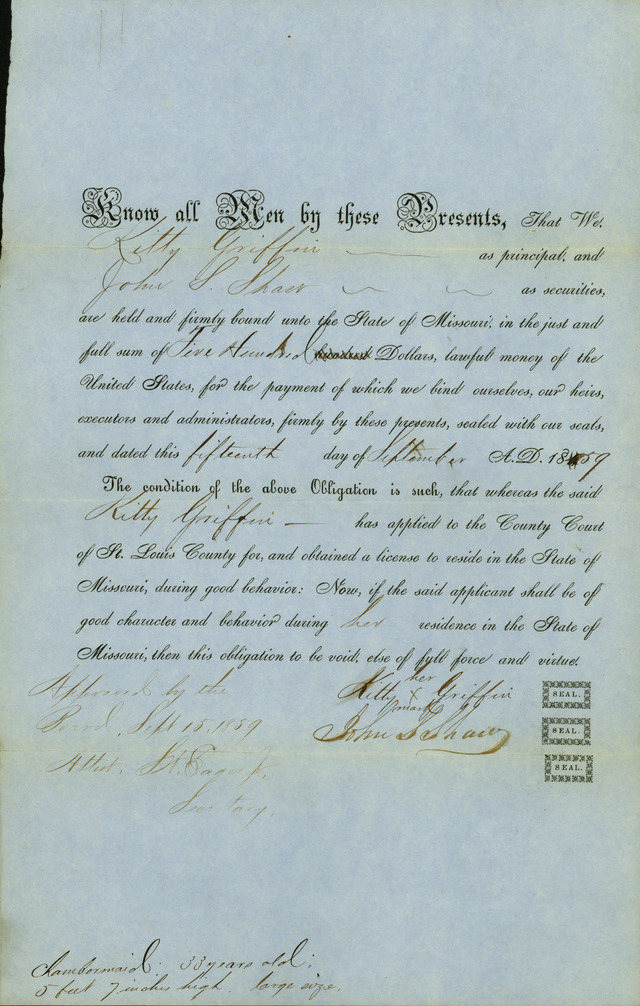 Know all Men by these Presents, That We,
Kitty Griffin as principal, and
John S. Shaw as securities,
are held and firmly bound unto the State of Missouri, in the just and
full sum of Five Hundred hundred Dollars, lawful money of the
United States, for the payment of which we bind ourselves, our heirs,
executors and administrators, firmly by these presents, sealed with our seals,
and dated this fifteenth day of September A.D. 1859
The condition of the above Obligation is such, that whereas the said
Kitty Griffin — has applied to the County Court
of St. Louis County for, and obtained a license to reside in the State of
Missouri, during good behavior: Now, if the said applicant shall be of
good character and behavior during her residence in the State of
Missouri, then this obligation to be void, else of full force and virtue.
her
Kitty X Griffin SEAL.
mark
John S Shaw SEAL.
SEAL.
Approved by the
Board, Sept 15, 1859
Attest.
Secretary.
Chambermaid: 33 years old;
5 feet 7 inches high. large size.